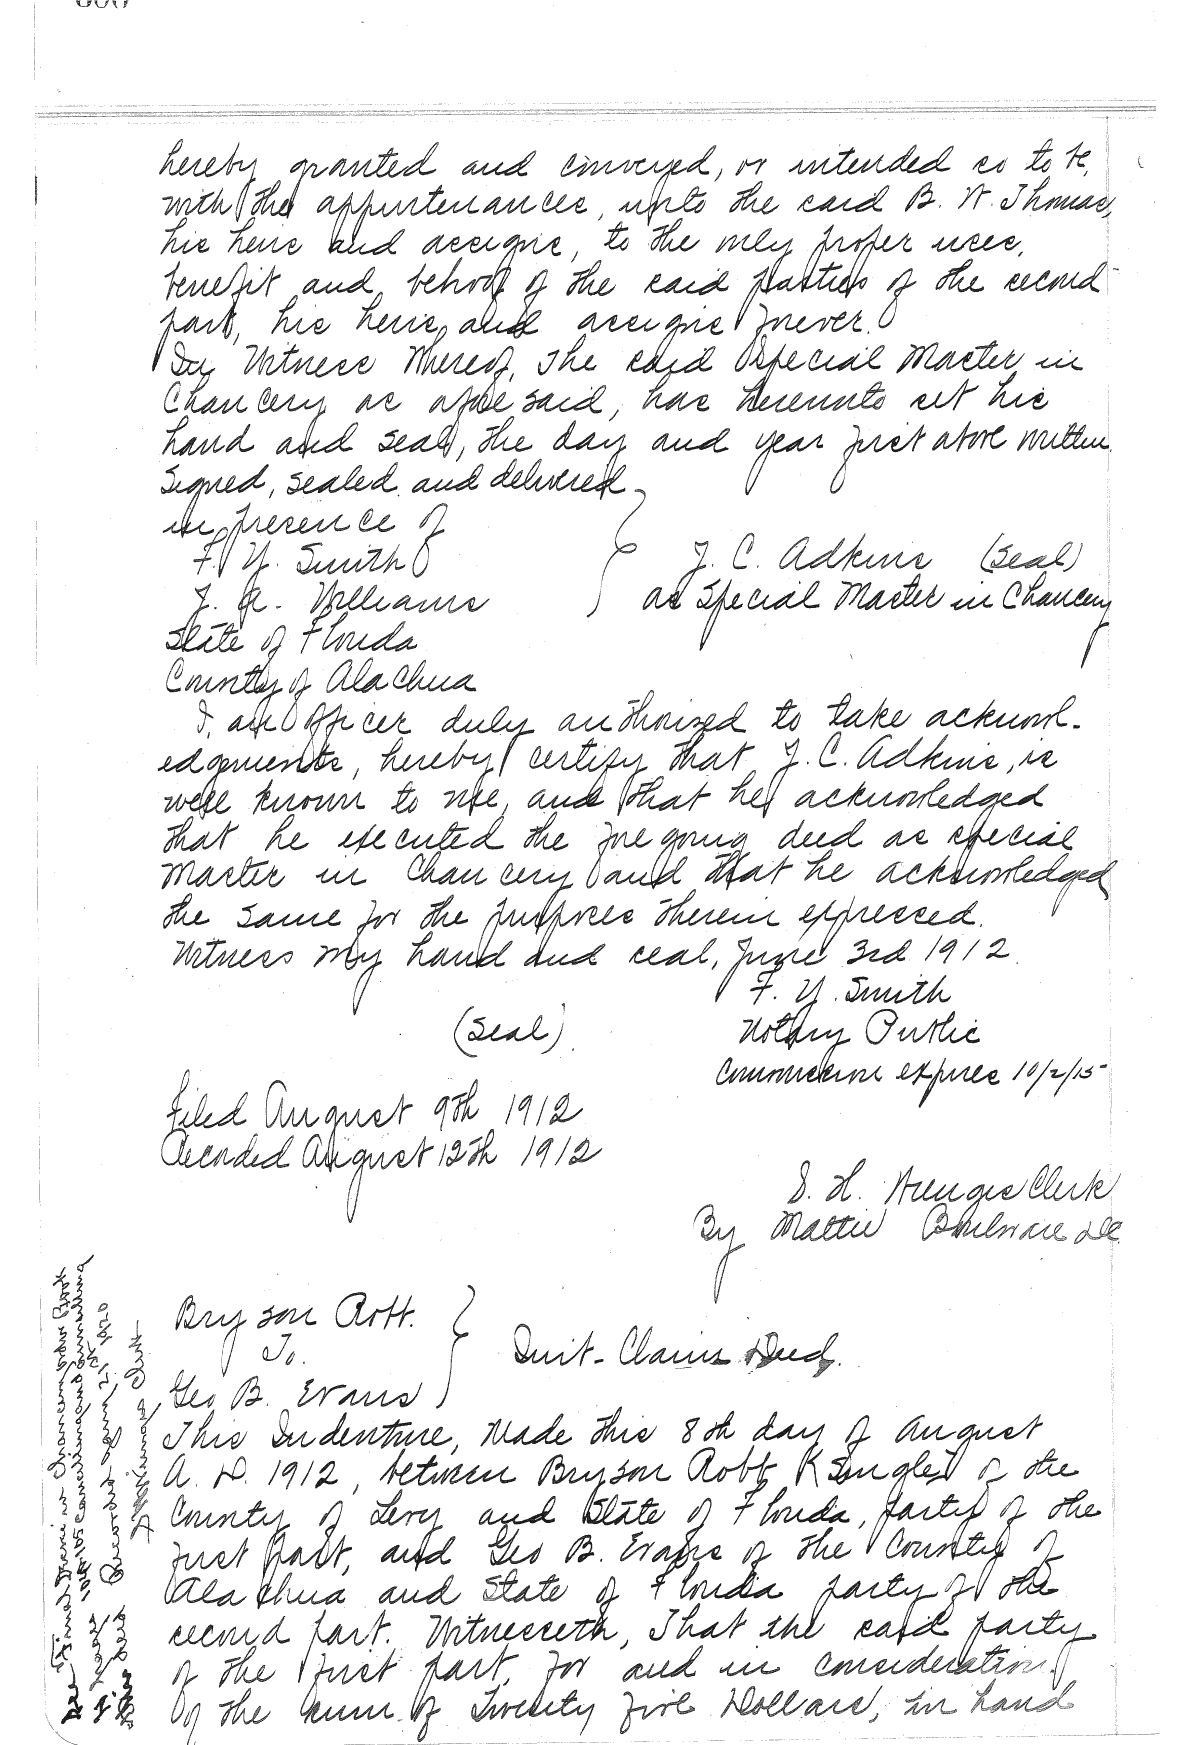 hereby granted and conveyed, or intended so to be,
with the appurtenances, unto the said B. W. Thomas,
his heirs and assigns, to the only proper uses,
benefit and behoof of the said parties of the second
part, his heirs, and assigns forever.
In Witness Whereof, The said Special Master in
Chancery as aforesaid, has hereunto set his
hand and seal, the day and year first above written.
Signed, sealed and delivered
in presence of
F. Y. Smith
J. C. Adkins (Seal)
J. A. Williams
as Special Master in Chancery
State of Florida
County of Alachua
I, an Officer duly authorized to take acknowl-
edgments, hereby certify that J. C. Adkins, is
well known to me, and that he acknowledged
that he executed the foregoing deed as special
Master in Chancery and that he acknowledged
the same for the purposes therein expressed.
Witness my hand and seal, June 3rd 1912.
F. Y. Smith
(Seal)
Notary Public
Commission expires 10/2/15
Filed August 9th 1912
Recorded August 12th 1912
S. H. Wienges Clerk
By Mattie Boulware D.C.
Bryson Robt.
To.
Quit-Claim Deed.
Geo B. Evans
This Indenture, Made this 8th day of August
A. D. 1912, between Bryson Robt (Single) of the
County of Levy and State of Florida, party of the
first part, and Geo B. Evans of the County of
Alachua and State of Florida party of the
second part. Witnesseth, That the said party
of the first part, for and in consideration
of the sum of Twenty five Dollars, in hand